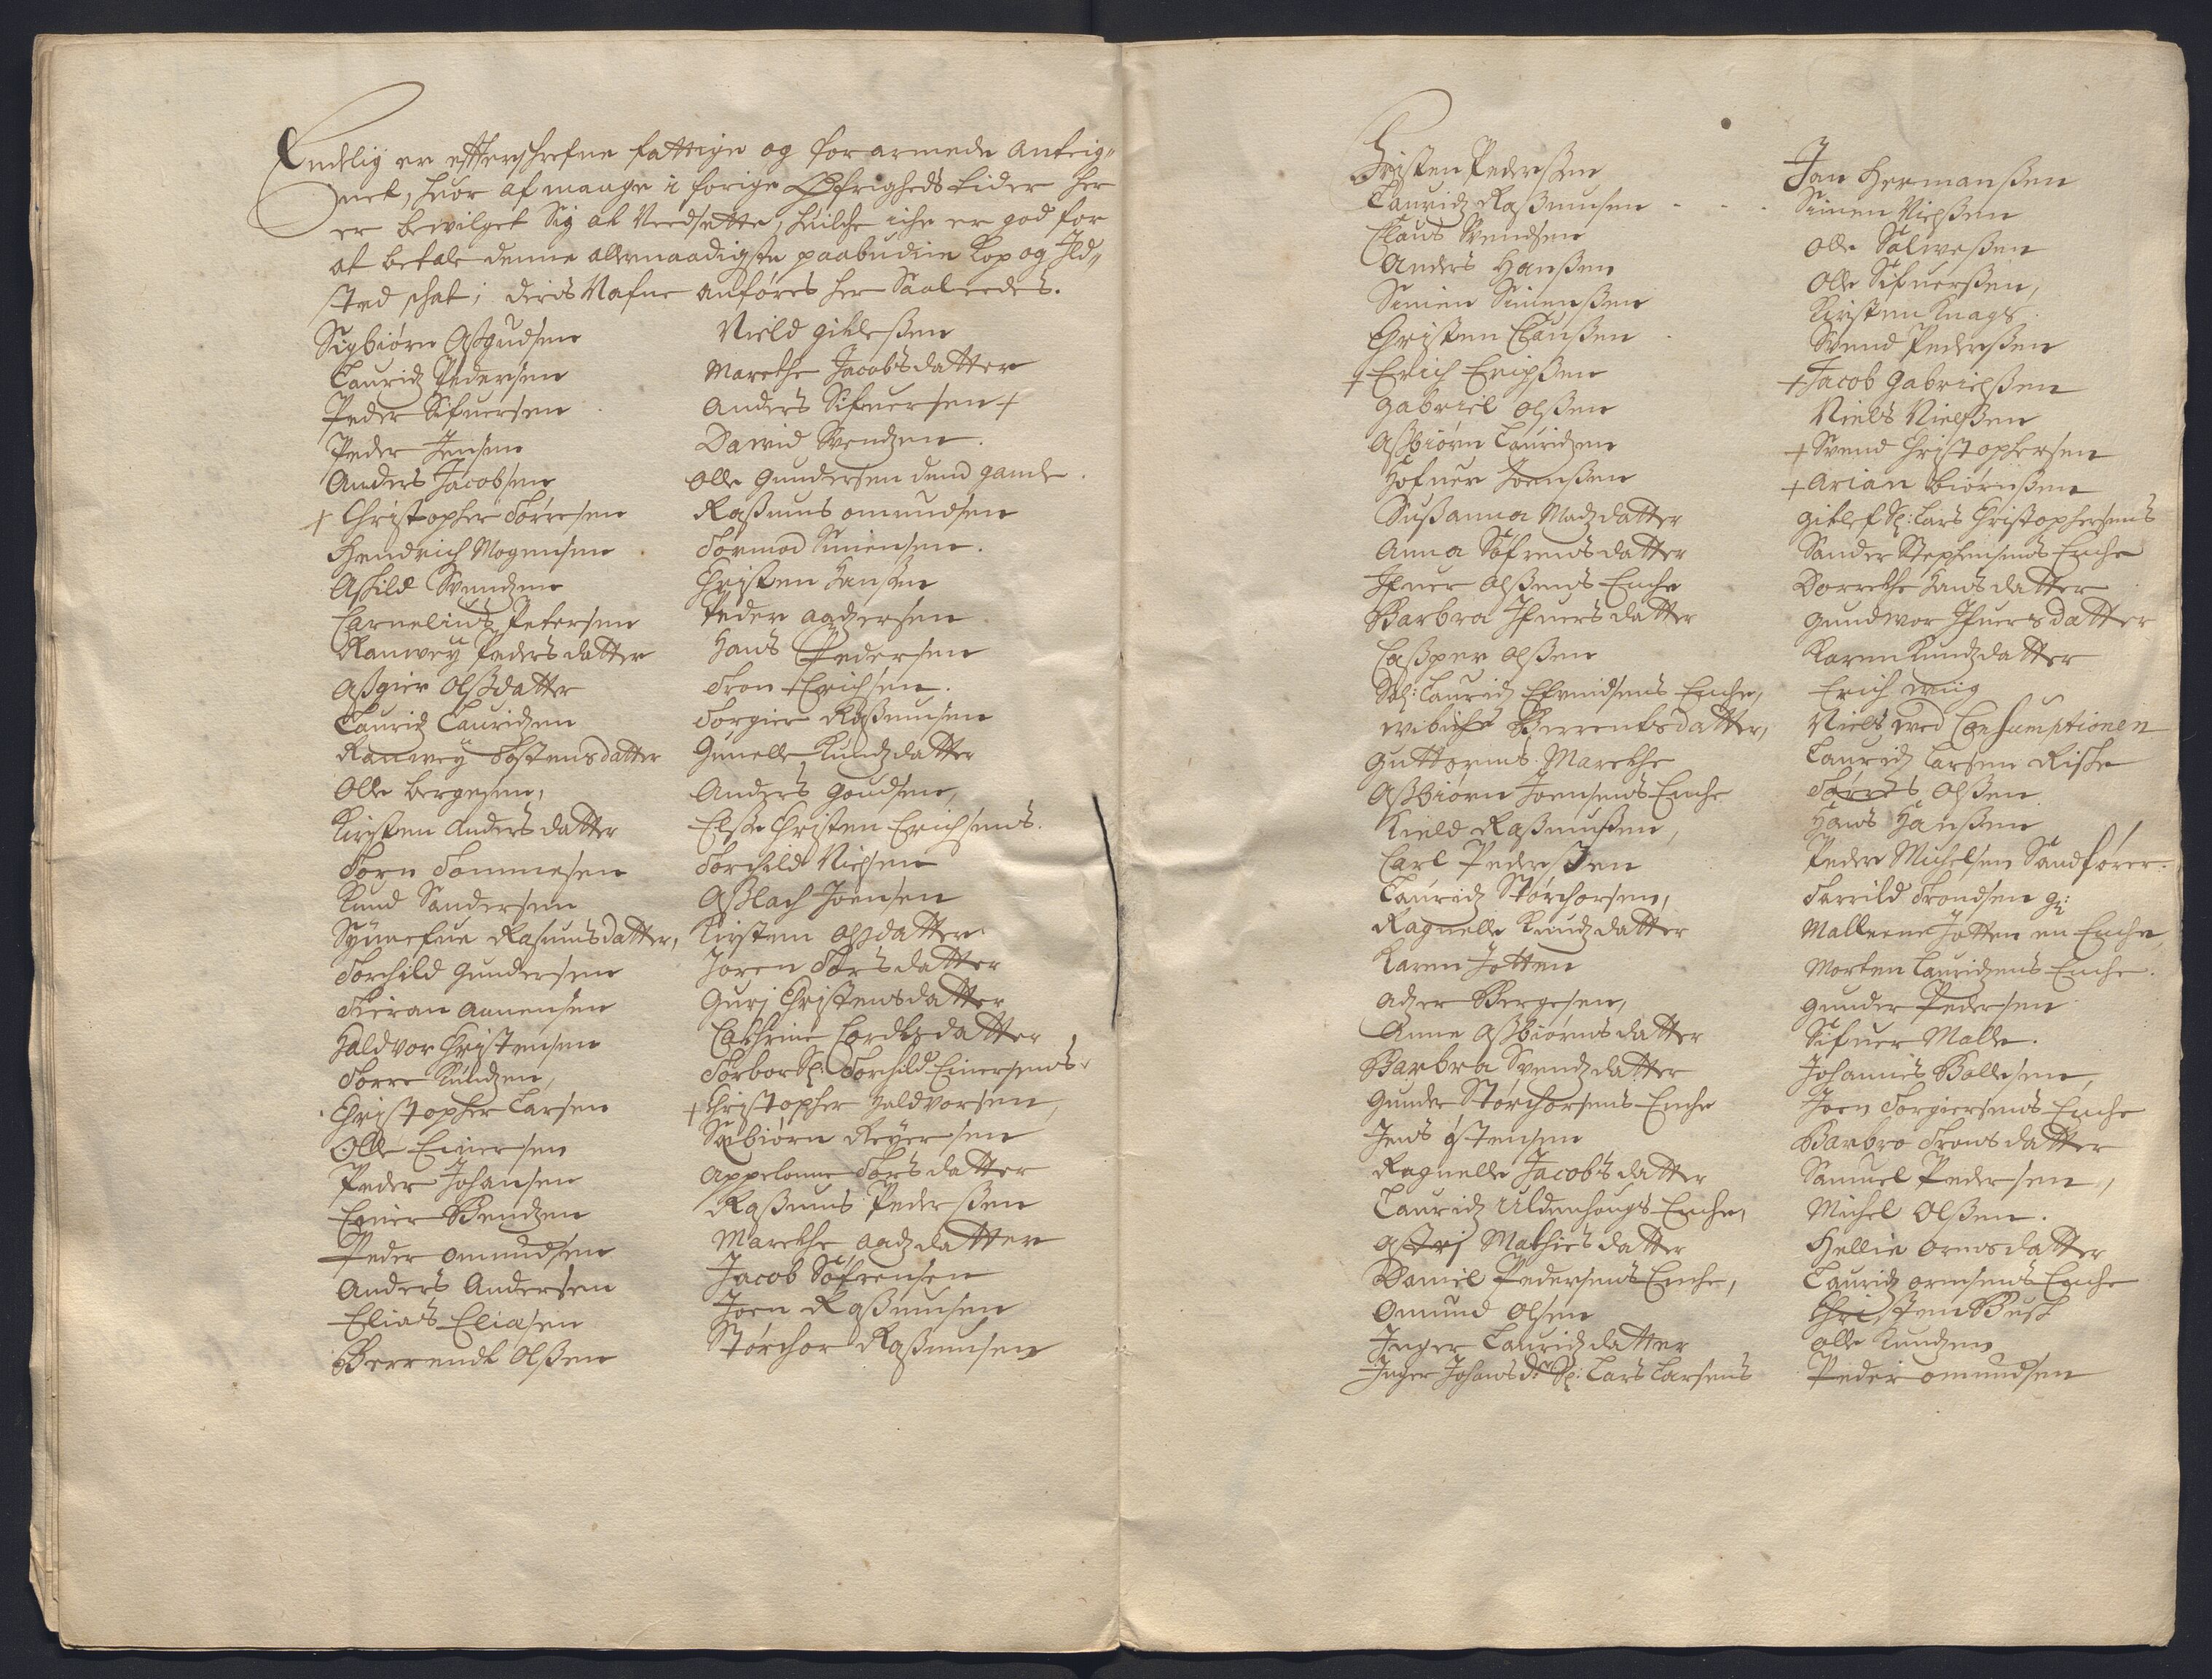 Endelig er effterschrefne fattige og forarmede anteig„
net, huor af mange i forige Øfrigheds tider her
er bewilget Sig at Needsætte, huilche iche er god for
at betale denne allernaadigste paabudine Kop og Ild„
sted schat; deris Nafne anføres her Saaleedes.
Sigbiørn Assgudsen
Lauridz Pedersen
Peder Sifuersen
Peder Jensen
Anders Jacobsen
+ Christopher Tørresen
Hendrich Mogensen
Aschild Svendzen
Carnelius Petersen
Ranvey Peders datter
Assgier Olssdatter
Lauridz Lauridzen
Ranwey Tostens datter
Olle Bergesen,
Kirsten Anders datter
Torn Tommesen
Knud Sandersen
Synnefue Rasmusdatter,
Torchild Gundersen
Kieran Aanensen
Haldvor Christensen
Torre Knudzen,
Christopher Larsen
Olle Einersen
Peder Johansen
Einer Bendzen
Peder Omundsen
Anders Andersen
Elias Eliasen
Berrendt Olssen
Nield Gitlessen
Marethe Jacobs datter
Anders Sifuersen +
David Svendzen.
Olle Gundersen dend gamle.
Rassmus Omundsen
Tormod Simensen.
Christen Hanssen
Peder Aadzersen
Hans Pedersen
Tron Erichsen.
Torgier Rassmusen
Gunelle Knudz datter
Anders Goudsen,
Elsse Christen Erichsens.
Torchild Nielsen
Asslach Joensen
Kirsten Olssdatter
Joren Tors datter
Gurj Christensdatter
Cathrine Cordtz datter
Torbor Sl: Torchild Einersens.
+ Christopher Haldvorsen,
Sæbiørn Reyersen
Appelonne Tors datter
Rassmus Pederssen
Marethe Aadz datter
Jacob Søfrensen
Joen Rassmusen
Størchor Rassmusen
Christen Pederssen
Lauridz Rassmusen - - -
Claus Svendsen
Anders Hanssen
Simen Simenssen
Christen Claussen
+ Erich Erichssen
Gabriel Olssen
Assbiørn Lauridzen
Hofuer Joenssen
Sussanna Madz datter
Anna Søfrens datter
Ifuer Olssens Enche
Barbra Ifuers datter
Cassper Olssen
Sal: Lauridz Efuindsens Enche,
Wibiche Berrents datter,
Guttorms Marethe
Assbiørn Joensens Enche
Kield Rassmussen,
Carl Pederssen
Lauridz Størchorsen,
Ragnelle Knudz datter
Karen Jotten
Adzer Bergesen,
Anne Assbiørns datter
Barbra Svendz datter
Gunder Størchorsens Enche
Jens Østensen
Ragnelle Jacobs datter
Lauridz Uldenhougs Enche,
Astrj Mathies datter
Daniel Pedersens Enche,
Omund Olsen
Inger Lauridz datter
Inger Johans dr Sl: Lars Larsens
Jan Hermanssen
Simen Nielssen
Olle Salwessen
Olle Sifuerssen,
Kirsten Knags.
Svend Pederssen
+ Jacob Gabrielssen
Niels Nielssen
+ Svend Christophersen
+ Arian Biørnssen
Gitlef Sl: Lars Christophersens
Sander Stephensens Enche
Dorrethe Hans datter
Gundwor Ifuers datter
Karen Knudz datter
Erich Wiig
Niels ved Consumptionen
Lauridz Larsen Riske
Tørres Olssen
Hans Hanssen
Peder Michelsen Sandfører.
Tarrild Trondsen gl:
Malleene Jotten en Enche
Morten Lauridzens Enche.
Gunder Pedersen
Sifuer Malle.
Johannes Ballesen,
Joen Torgiersens Enche
Barbro Trons datter
Samuel Pedersen,
Michel Olssen.
Hellie Orms datter
Lauridz Ormsens Enche
Christen Busk
Olle Knudzen
Peder Omundsen